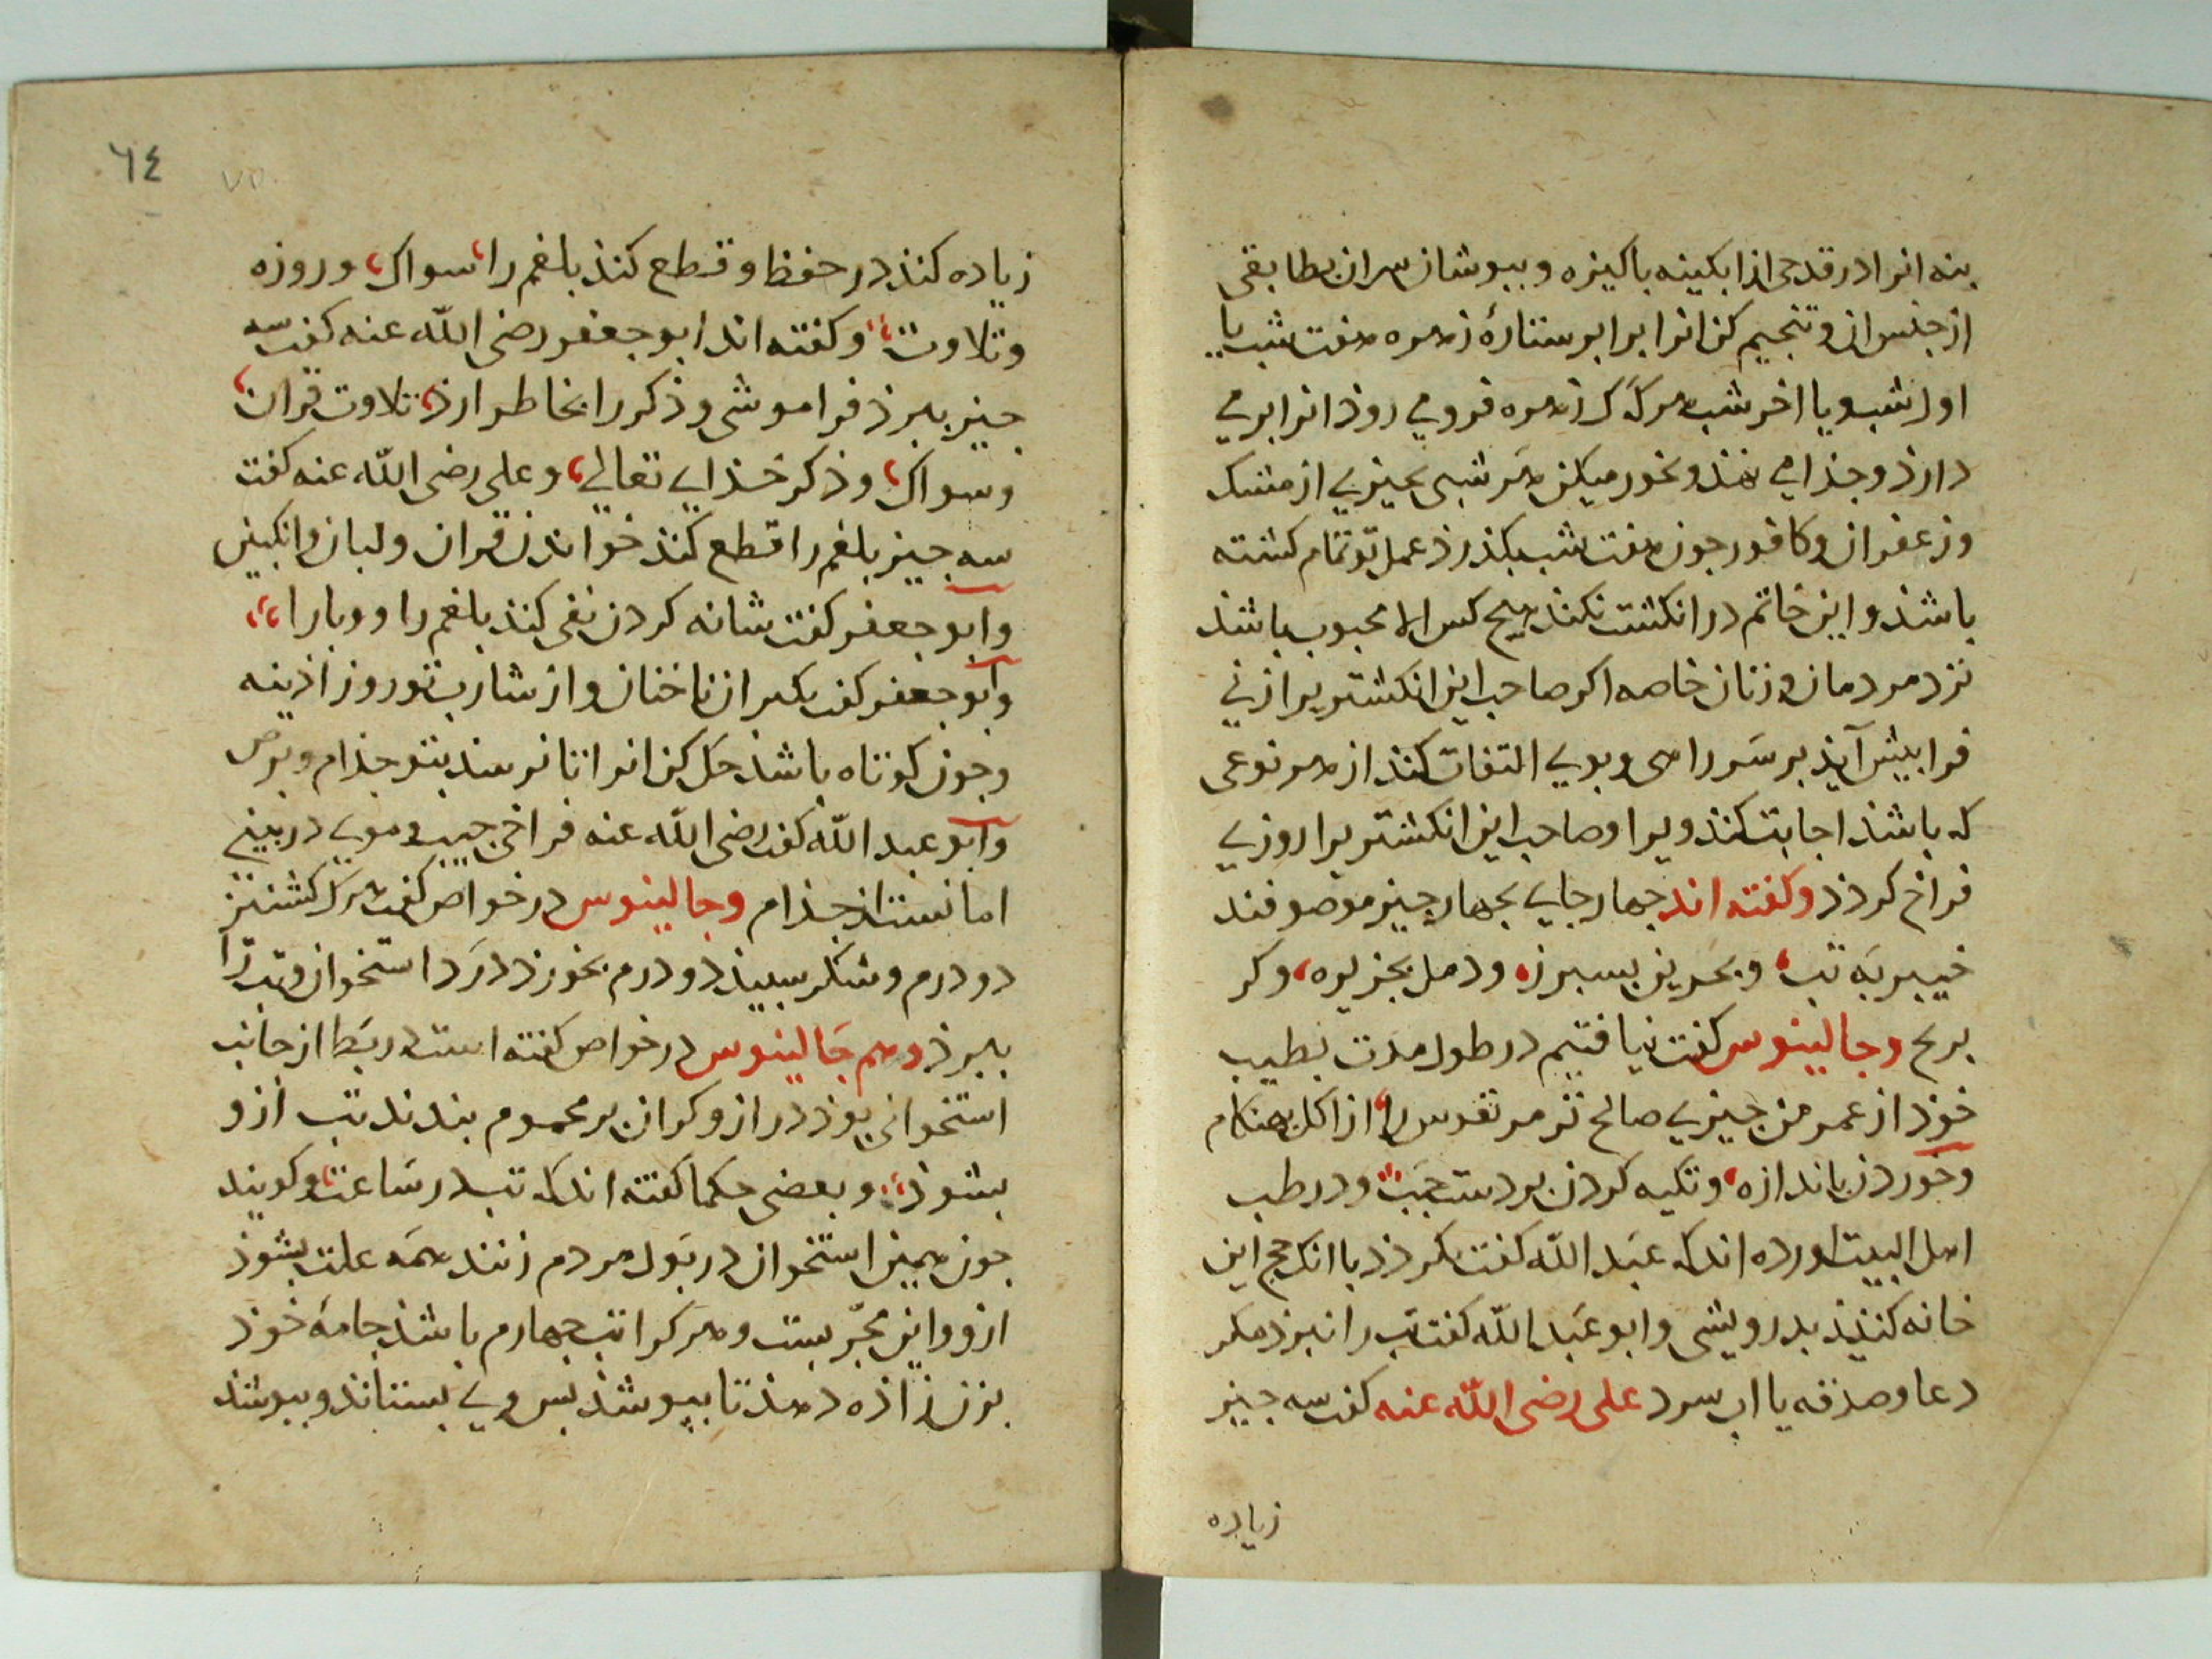 بنه انرا در قدحی از ابکینه باکیزه و ببوشان سران بطابقی
از جنس ان و تنجیم کن انرا برابر ستارهٔ زهره هفت شب یا
اول شب و یا اخر شب هرکه که زهره فرو می روذ انرا برمی
دارذ و جذا می نهذ و بخور میکن هر شبی بجیزی از مشک
وزعفران و کافور جون هفت شب بکذرذ عمل تو تمام کشته
باشذ و این خاتم در انکشت نکند هیج کس الا محبوب باشذ
نزد مردمان و زنان خاصه اکر صاحب این انکشتریرا زنی
فرا بیش آیذ بر سر راهی و بوی التفات کنذ از هر نوعی
که باشذ اجابت کنذ ویرا و صاحب این انکشتریرا روزی
فراخ کردذ وکفته اند جهار جای بجهار جیز موصوفند
خیبر به تب، و بحرین بسبرز، و دمل بجزیره، و کر
بریح وجالینوس کفت نیافتیم در طول مدت بطیب
خوذ از عمر من جیزی صالح تر مر نقرس را، از اکل بهنکام
وخوردن باندازه، و تکیه کردن بر دست جب و در طب
اهل البیت اورده اند که عبد الله کفت نکردذ با انک حج این
خانه کنذ بدرویشی و ابو عبد الله کفت تب را نبرذ مکر
دعا و صدقه یا اب سرد علی رضی الله عنه کفت سه جیز
زیاده
٦٤
زیاده کنذ در حفظ و قطع کنذ بلغم را، سواک، و روزه
وتلاوت، وکفته اند ابو جعفر رضی الله عنه کفت سه
جیز ببرذ فراموشی و ذکر را بخاطر ارذ، تلاوت قران،
وسواک، وذکر خذای تعالی، و علی رضی الله عنه کفت
سه جیز بلغم را قطع کنذ خواندن قران و لبان و انکبین
وابو جعفر کفت شانه کردن نفی کنذ بلغم را و وبا را،
وابو جعفر کفت بکیر از ناخنان و از شارب تو روز اذینه
وجون کوتاه باشذ حل کن انرا تا نرسذ بتو جذام و برص
وابو عبد الله کفت رضی الله عنه فراخی جیب و موی در بینی
امانست از جذام وجالینوس در خواص کفت هرکه کشنیز
دو درم و شکر سبیذ دو درم بخورذ درد استخوان و تب را
ببرذ وهم جالینوس در خواص کفته است در بط از جانب
استخوانی بوذ دراز و کر ان بر محموم بندند تب ازو
بشوذ، و بعضی حکما کفته اند که تب در ساعت و کویند
جون همین استخوان در بول مردم زنند همه علت بشوذ
ازو واین مجربست و هرکرا تب جهارم باشذ جامهٔ خوذ
بزن زاذه دهذ تا ببوشذ بس وی بستاند و ببوشذ